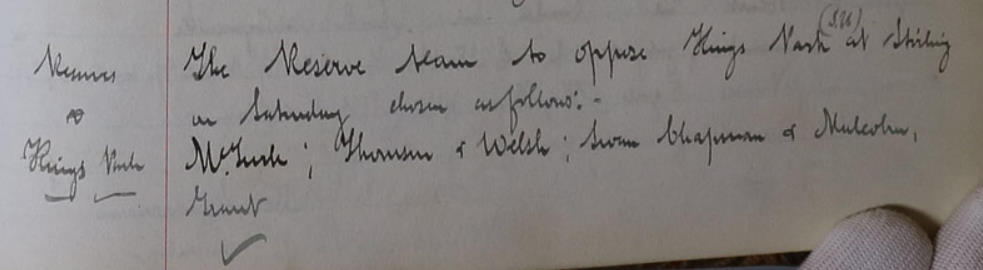 Reserves
v
Kings Park
The Reserve team to oppose Kings Park (S.U) at Stirling
on Saturday chosen as follows:-
McTurk; Thomson & Welsh; Swan Chapman & Malcolm,
Grant